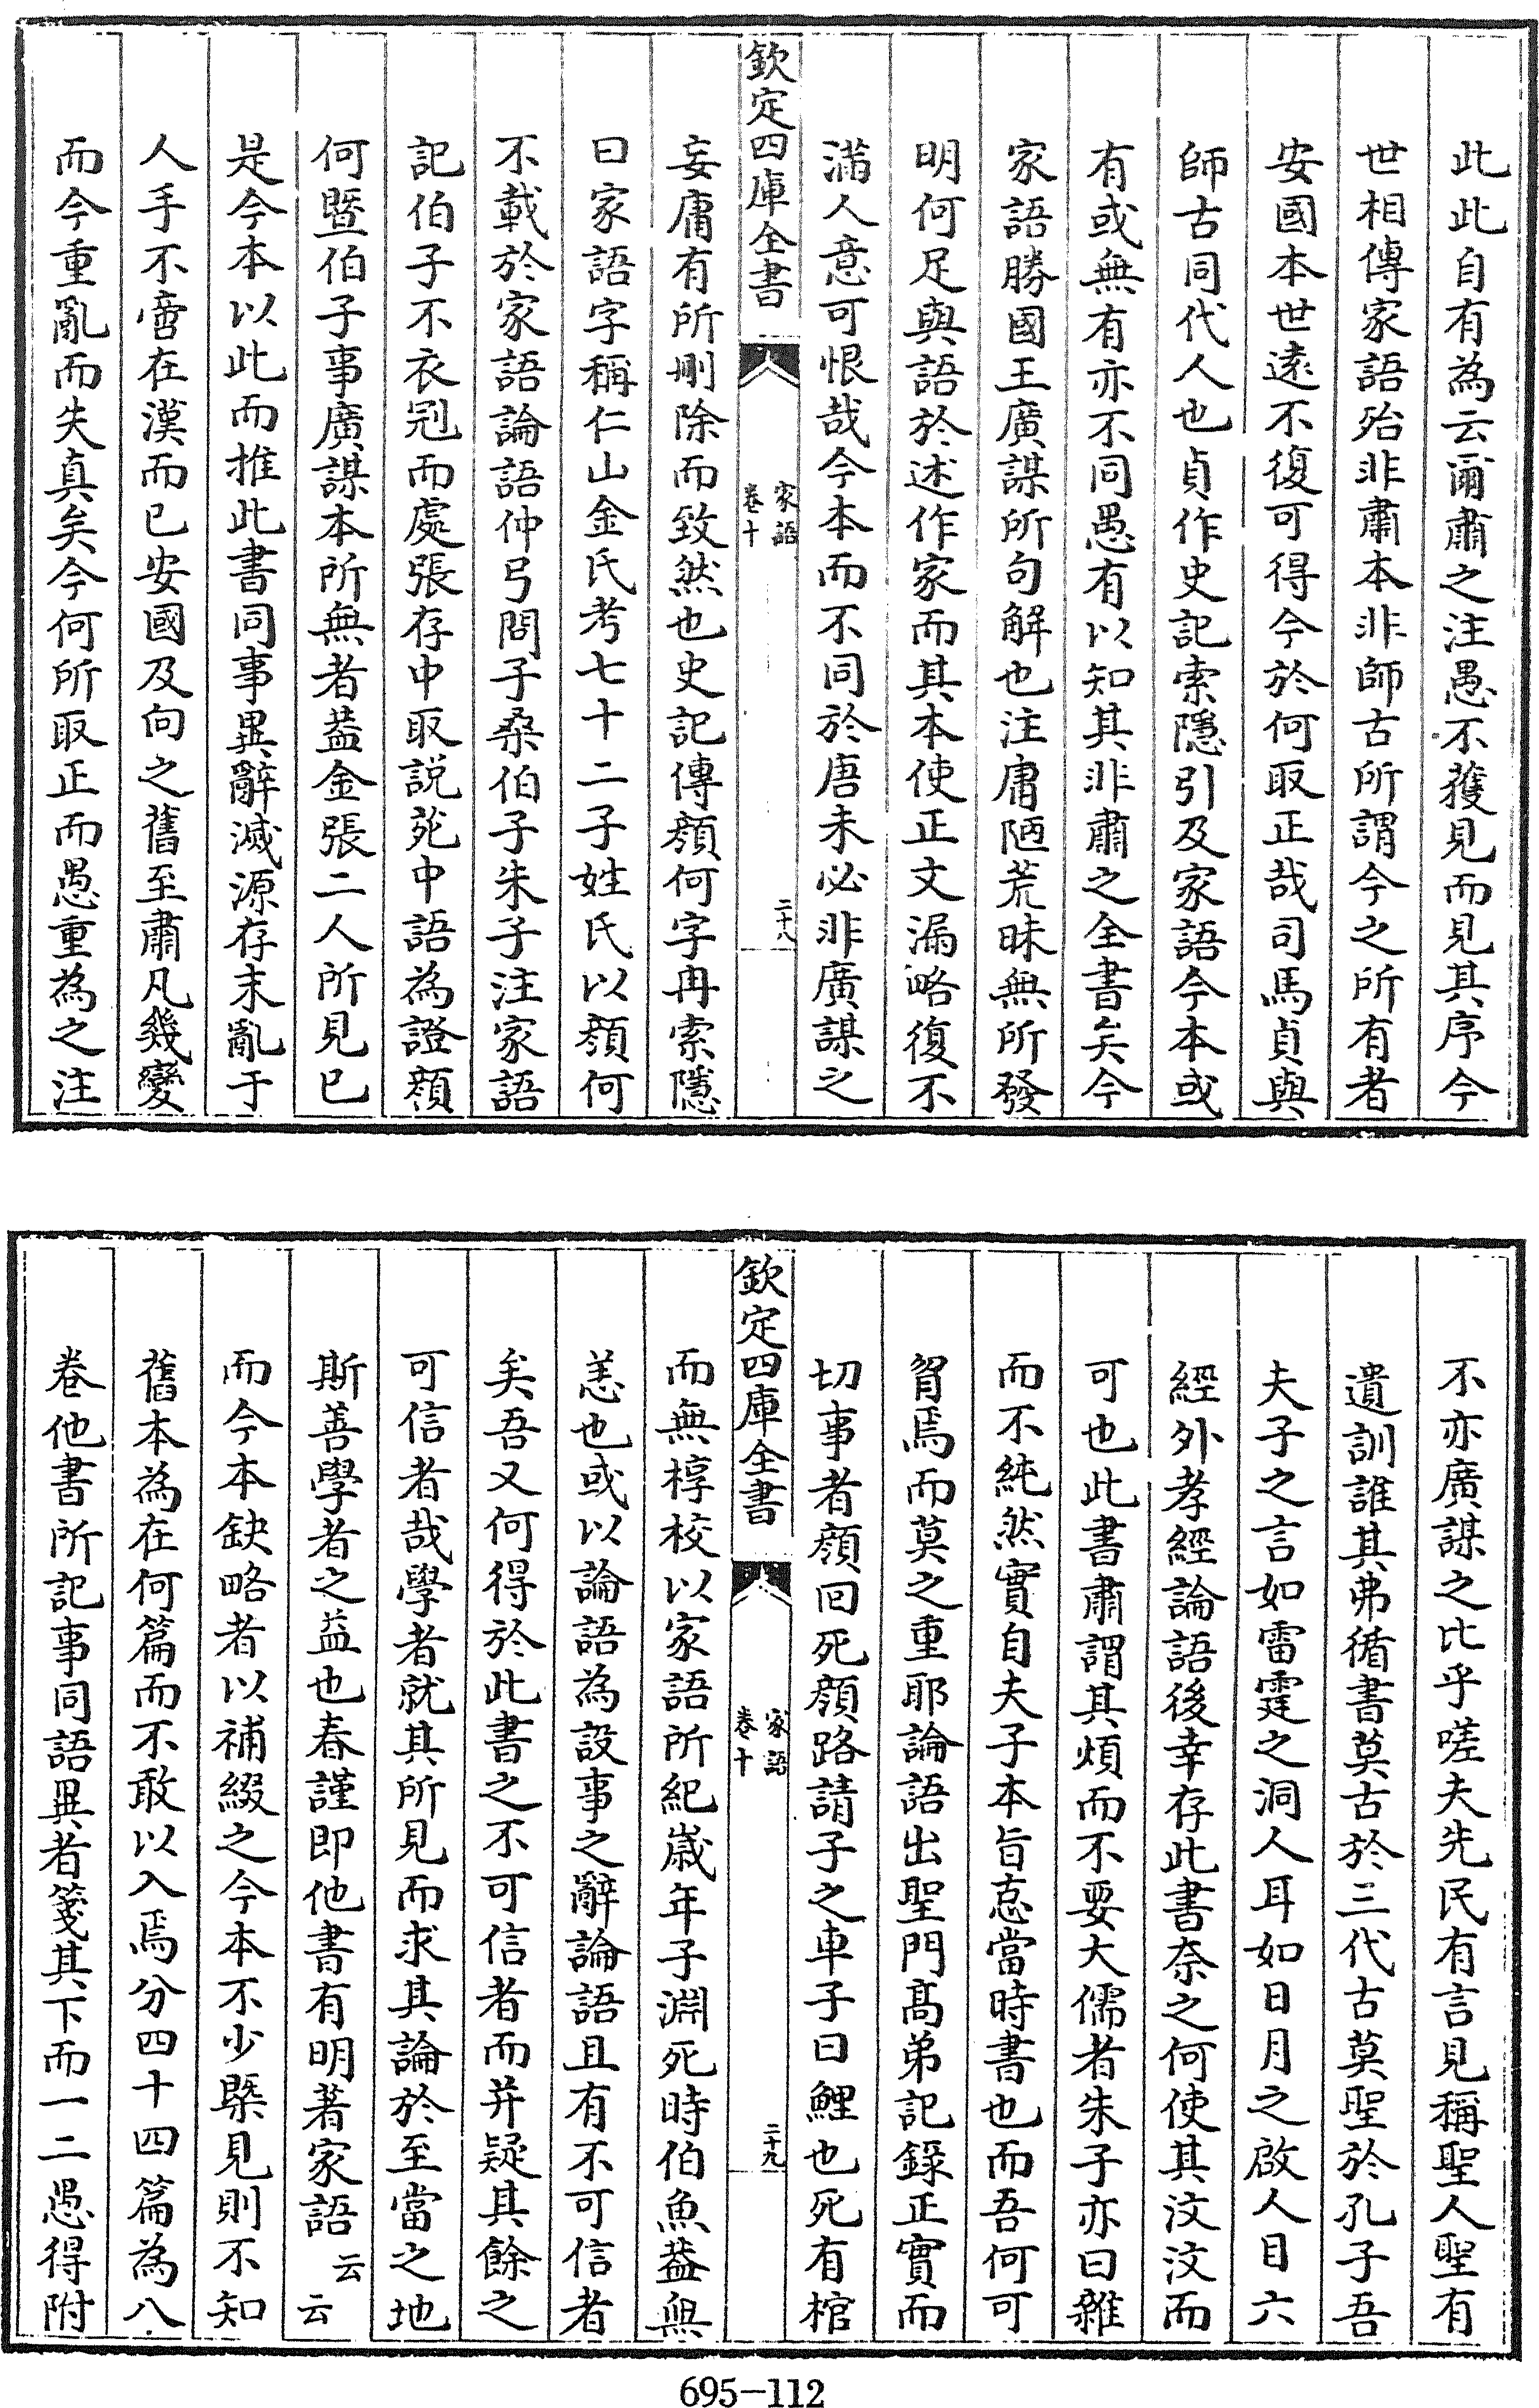 此此自有為云爾肅之注愚不獲見而見其序今
世相傳家語殆非肅本非師古所謂今之所有者
安國本世遠不復可得今於何取正哉司馬貞與
師古同代人也貞作史記索隱引及家語今本或
有或無有亦不同愚有以知其非肅之全書矣今
家語勝國王廣謀所句解也注庸陋荒昧無所發
明何足與語於述作家而其本使正文漏略復不
滿人意可恨哉今本而不同於唐未必非廣謀之
欽定四庫全書
家語
卷十
二十八
妄庸有所刪除而致然也史記傳顏何字冉索隱
曰家語字稱仁山金氏考七十二子姓氏以顏何
不載於家語論語仲弓問子桑伯子朱子注家語
記伯子不衣冠而處張存中取説苑中語為證顏
何暨伯子事廣謀本所無者葢金張二人所見已
是今本以此而推此書同事異辭滅源存末亂于
人手不啻在漢而已安國及向之舊至肅凡幾變
而今重亂而失真矣今何所取正而愚重為之注
不亦廣謀之比乎嗟夫先民有言見稱聖人聖有
遺訓誰其弗循書莫古於三代古莫聖於孔子吾
夫子之言如雷霆之洞人耳如日月之啟人目六
經外孝經論語後幸存此書奈之何使其汶汶而
可也此書肅謂其煩而不要大儒者朱子亦曰雜
而不純然實自夫子本旨㤀當時書也而吾何可
貿焉而莫之重耶論語出聖門髙弟記錄正實而
切事者顏回死顏路請子之車子曰鯉也死有棺
欽定四庫全書
家語
卷十
二十九
而無椁校以家語所紀歲年子淵死時伯魚葢無
恙也或以論語為設事之辭論語且有不可信者
矣吾又何得於此書之不可信者而并疑其餘之
可信者哉學者就其所見而求其論於至當之地
斯善學者之益也春謹即他書有明著家語云云
而今本缺略者以補綴之今本不少槩見則不知
舊本為在何篇而不敢以入焉分四十四篇為八
卷他書所記事同語異者箋其下而一二愚得附
695-112